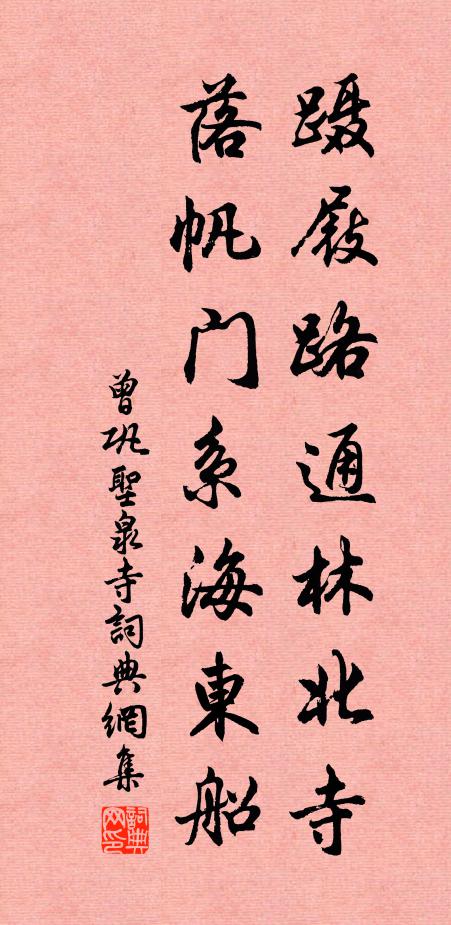 蹑屐路通林北寺
落帆门系海东船
曾巩聖泉寺詞典網集
詞典网印